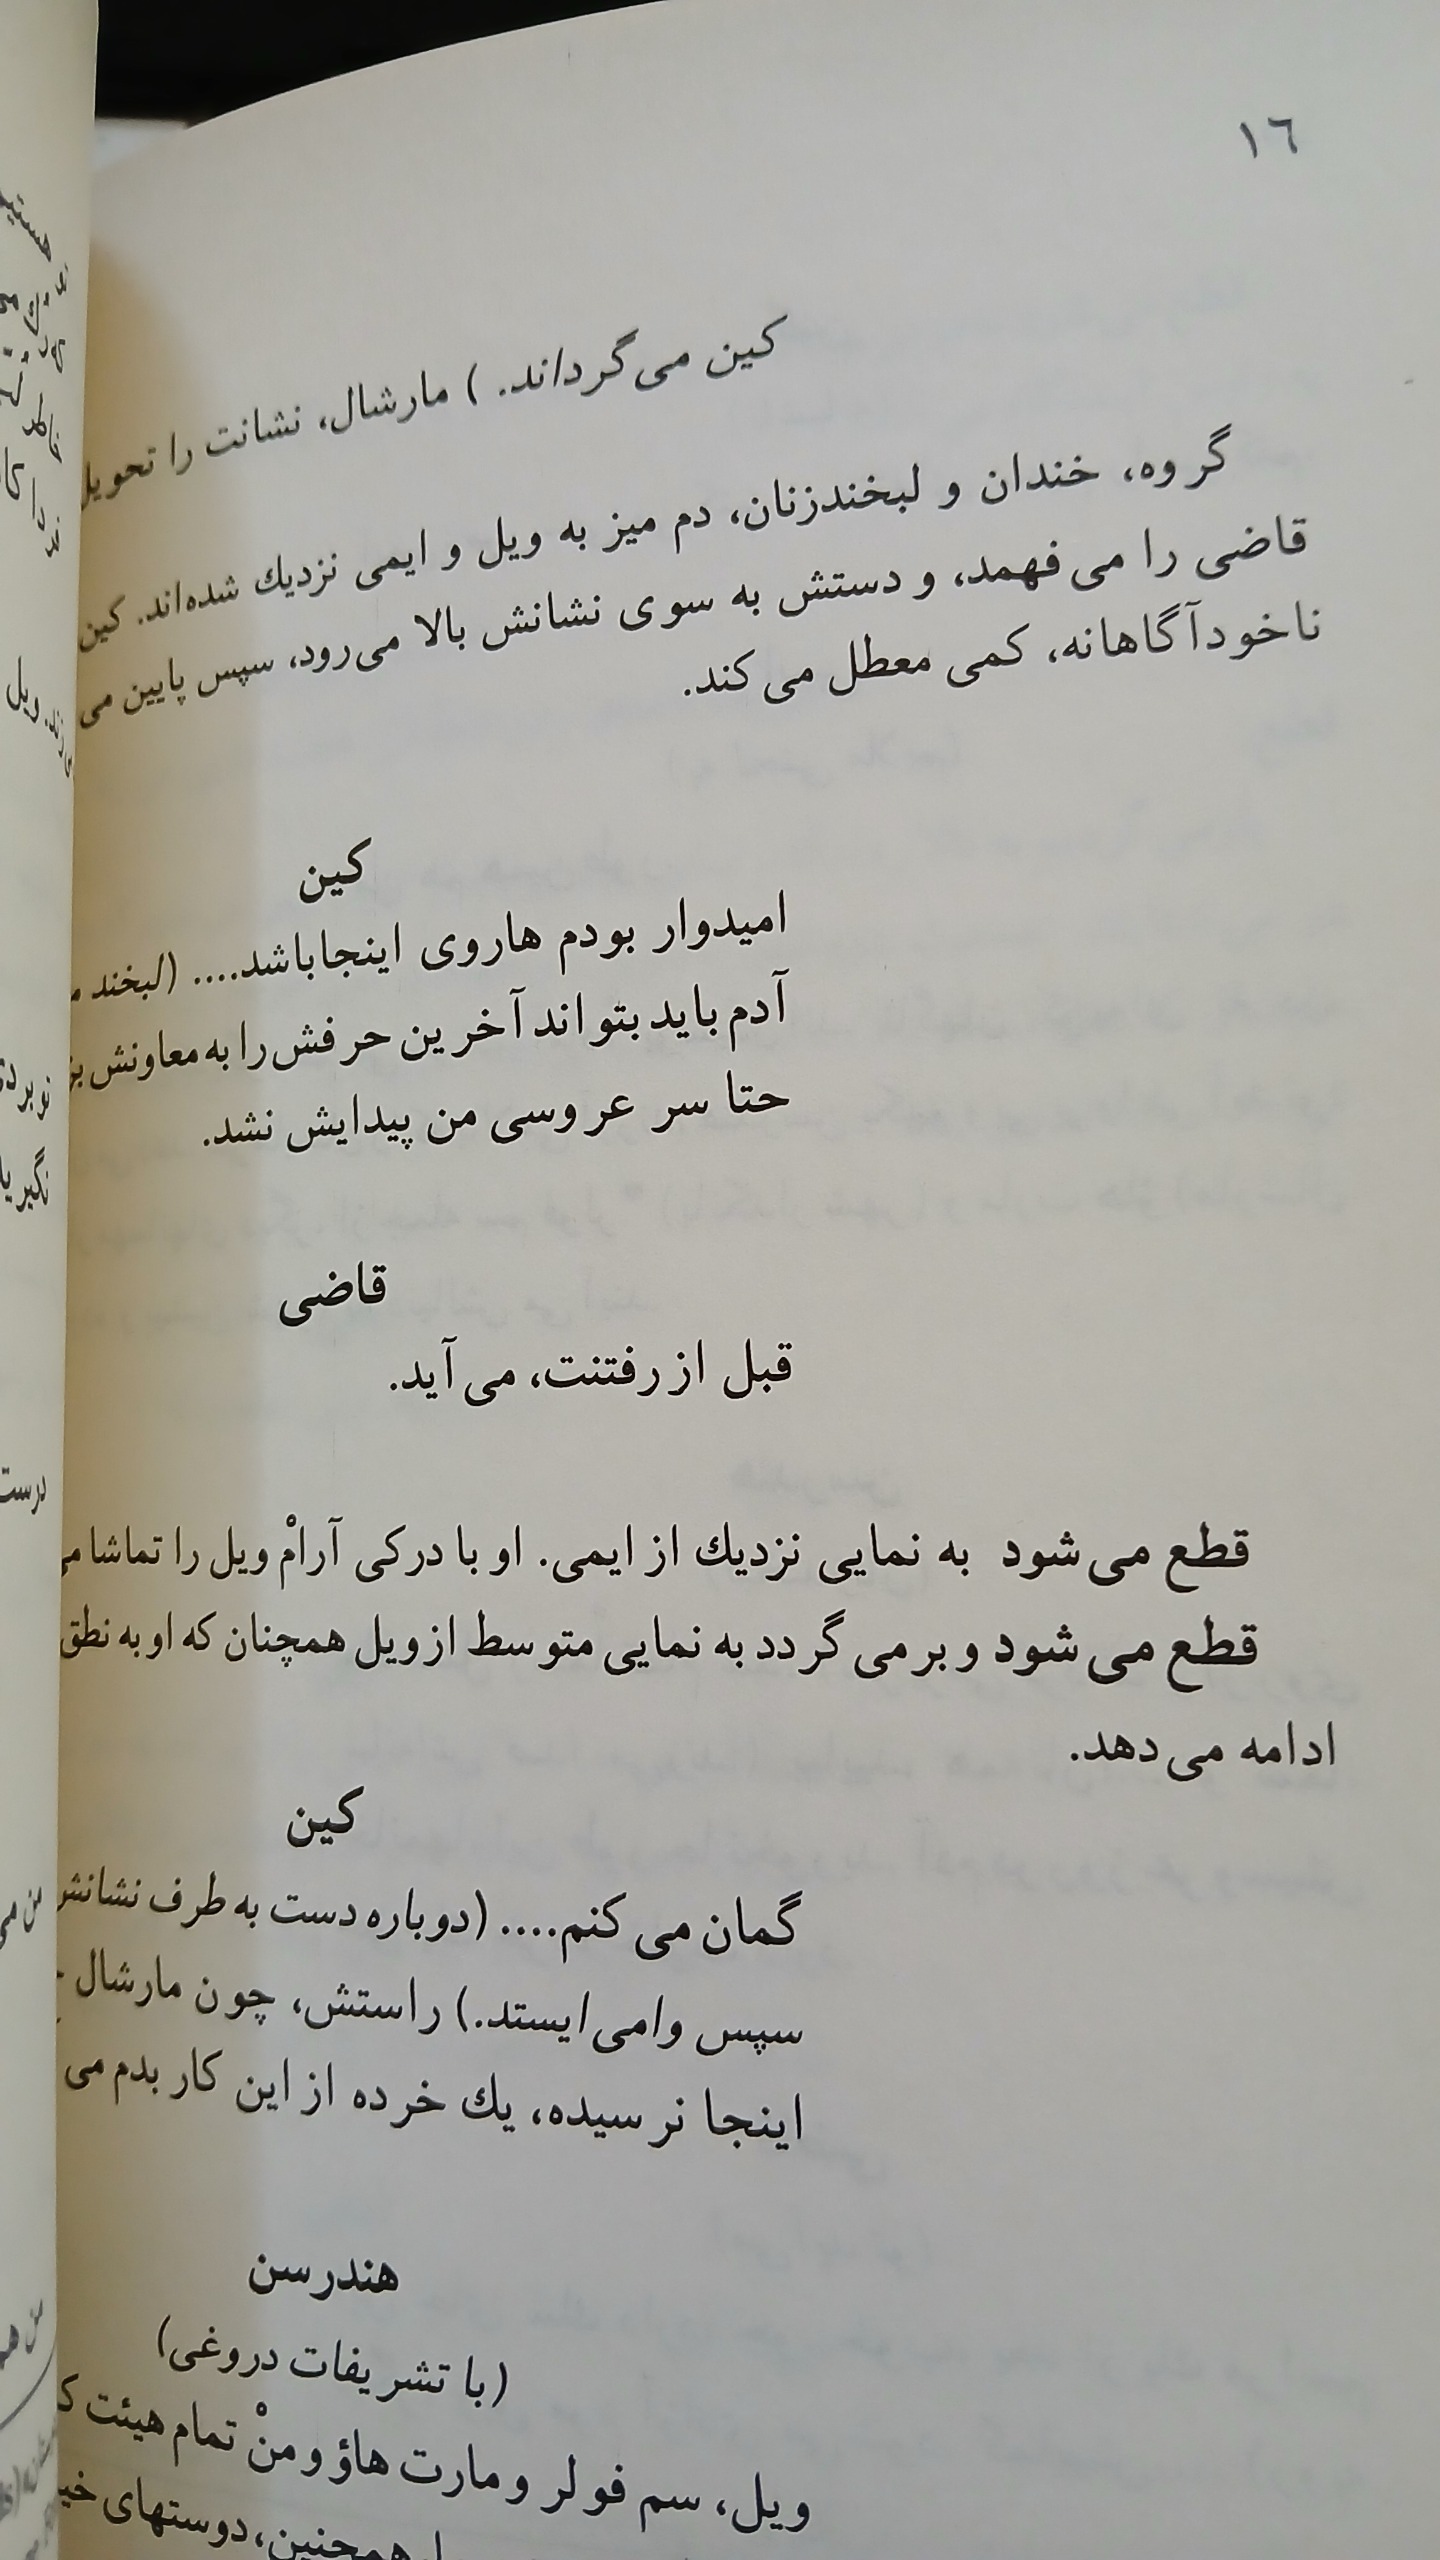 ١٦
کین می‌گرداند. ) مارشال، نشانت را تحویل
گروه، خندان و لبخندزنان، دم میز به ویل و ایمی نزدیك شده‌اند. کین
قاضی را می‌فهمد، و دستش به سوی نشانش بالا می‌رود، سپس پایین می
ناخودآگاهانه، کمی معطل می‌کند.
کین
امیدوار بودم هاروی اینجاباشد.... (لبخند
آدم باید بتواند آخرین حرفش را به معاونش
حتا سر عروسی من پیدایش نشد.
قاضی
قبل از رفتنت، می‌آید.
قطع می‌شود به نمایی نزدیك از ایمی. او با درکی آرامْ ویل را تماشا
قطع می‌شود و برمی‌گردد به نمایی متوسط از ویل همچنان که او به نطق
ادامه می‌دهد.
کین
گمان می‌کنم.... (دوباره دست به طرف نشانش
سپس وامی‌ایستد.) راستش، چون مارشال
اینجا نرسیده، یك خرده از این کار بدم می
هندرسن
(با تشریفات دروغی)
ویل، سم فولر و مارت هاؤ و منْ تمام هیئت
همچنین، دوستهای